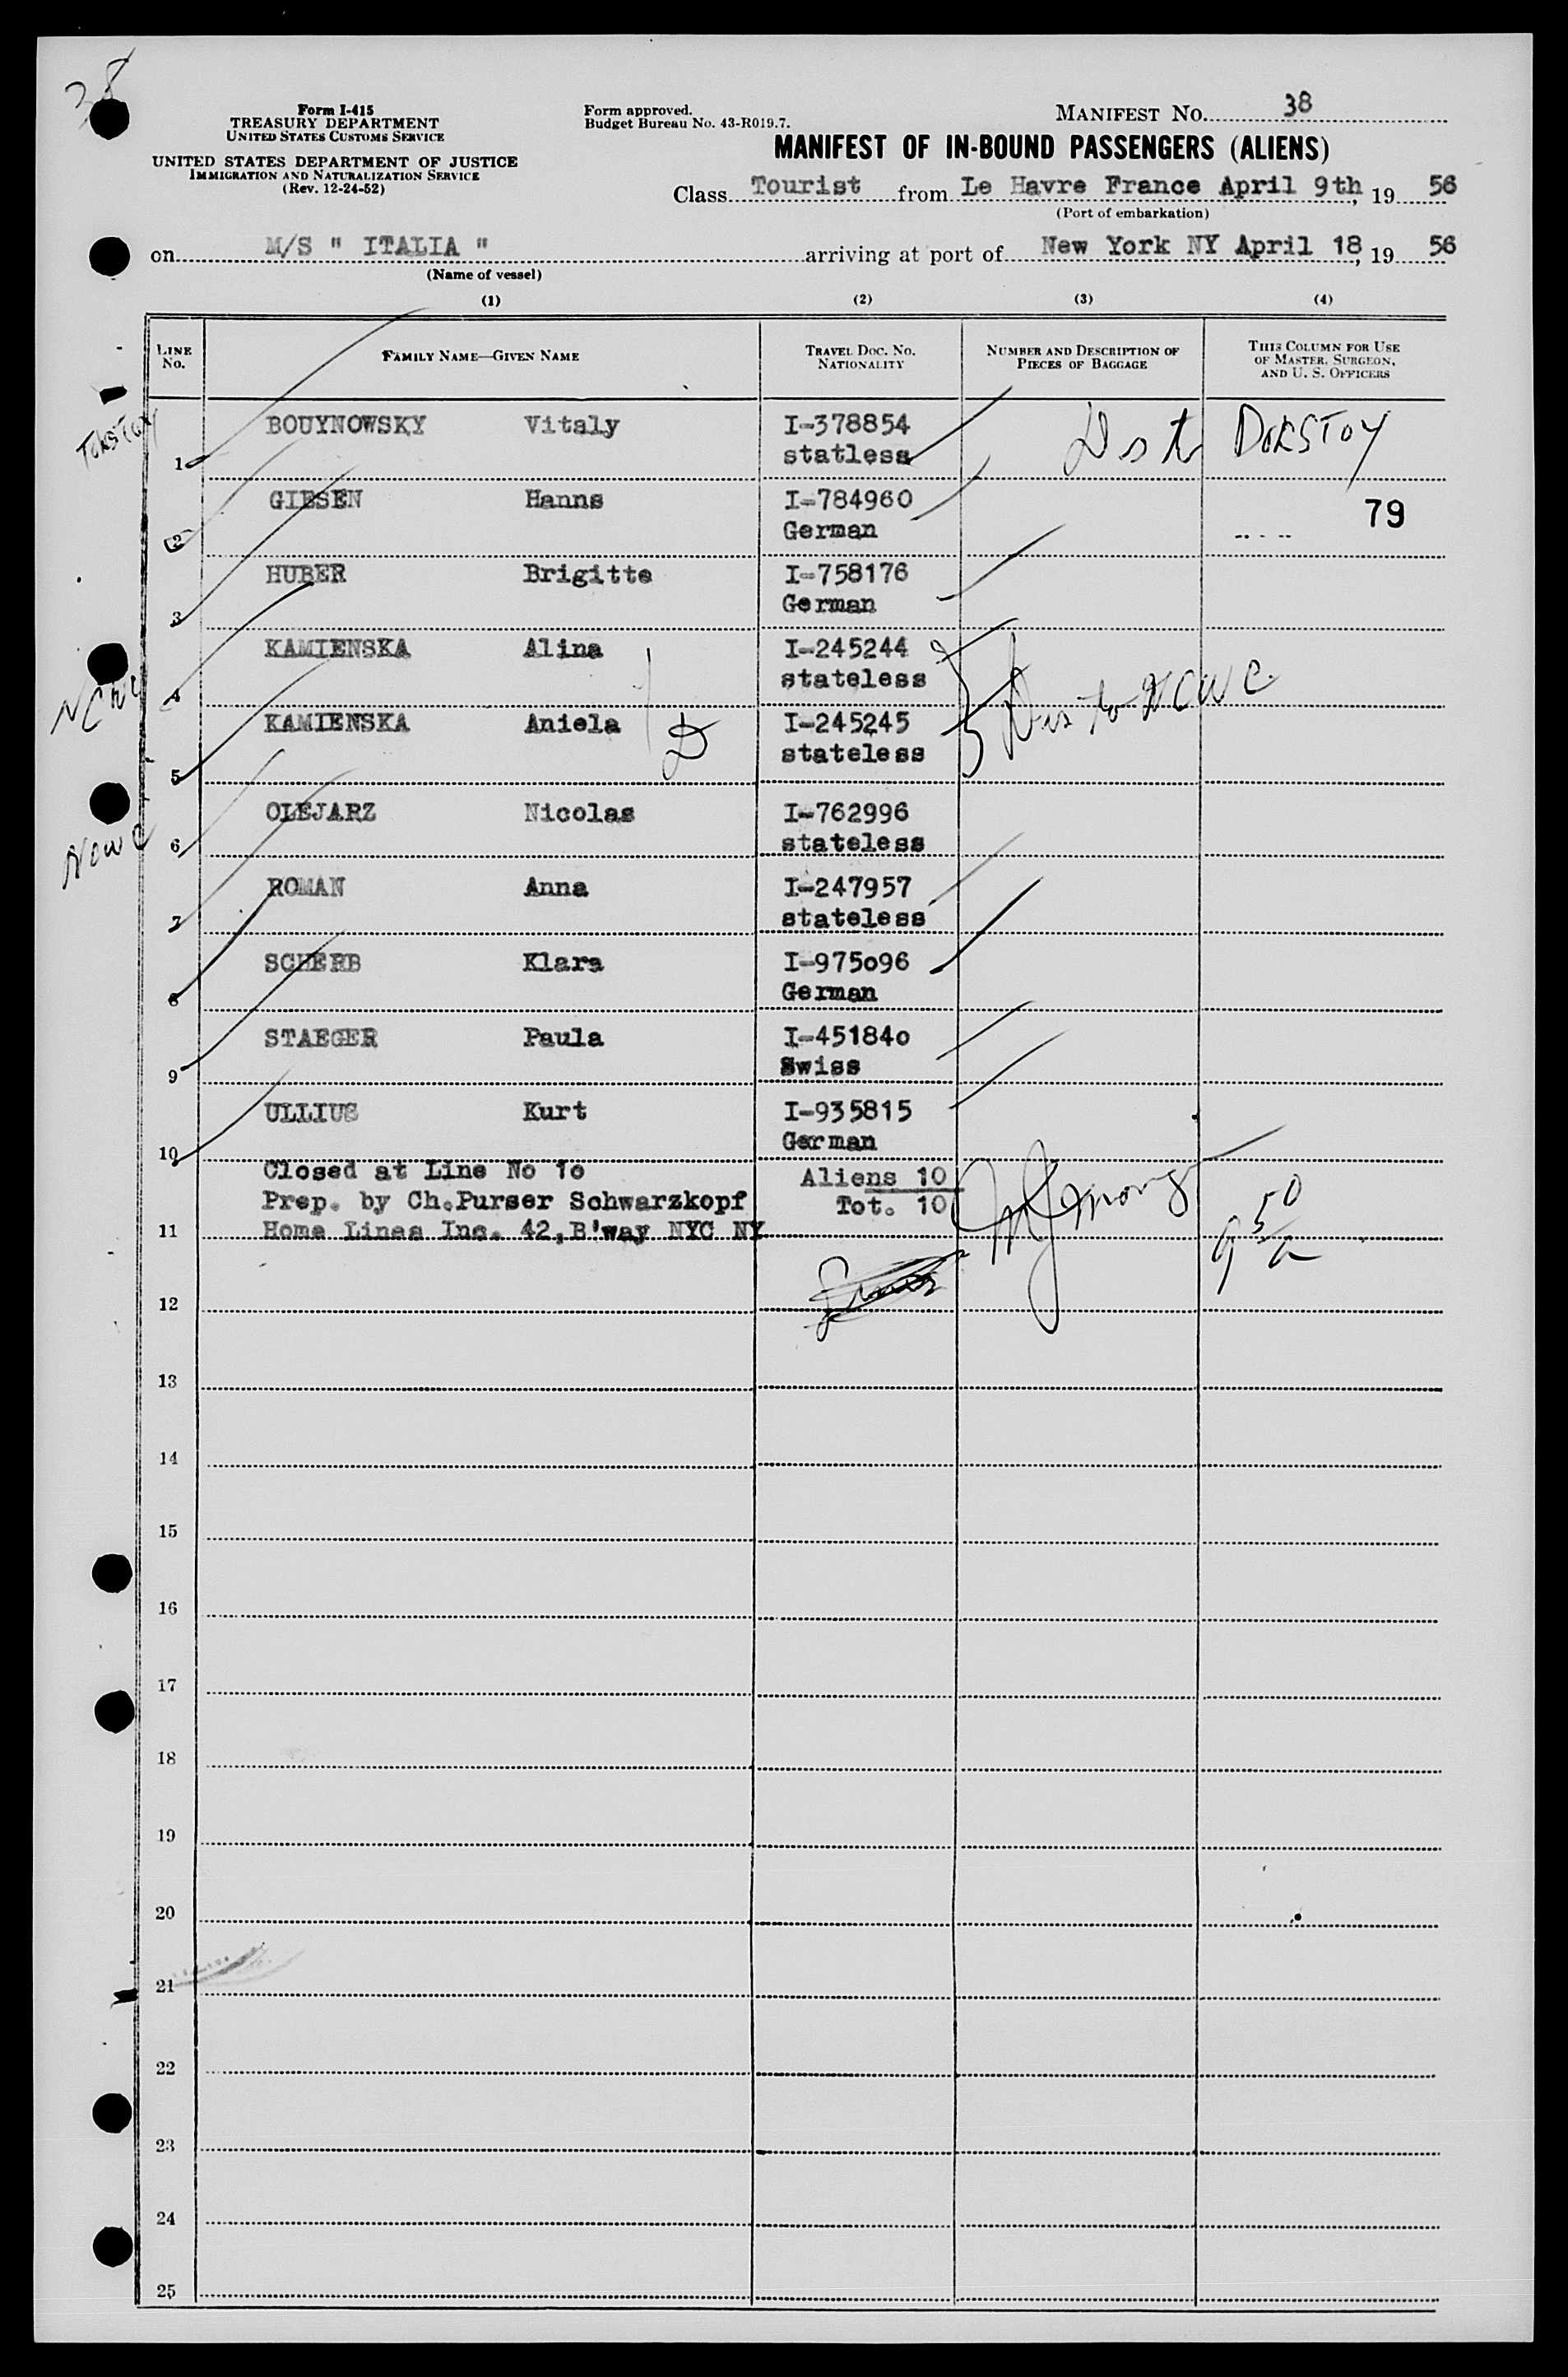 38
Form I-415
TREASURY DEPARTMENT
UNITED STATES CUSTOMS SERVICE
UNITED STATES DEPARTMENT OF JUSTICE
IMMIGRATION AND NATURALIZATION SERVICE
(Rev. 12-24-52)
Form approved.
Budget Bureau No. 43-R019.7.
MANIFEST No. 38
MANIFEST OF IN-BOUND PASSENGERS (ALIENS)
Class Tourist from Le Havre France April 9th, 19 56
(Port of embarkation)
on M/S " ITALIA " arriving at port of New York NY April 18, 19 56
(Name of vessel)
(1) (2) (3) (4)
LINE No. FAMILY NAME—GIVEN NAME TRAVEL DOC. No. NATIONALITY NUMBER AND DESCRIPTION OF PIECES OF BAGGAGE THIS COLUMN FOR USE OF MASTER, SURGEON, AND U. S. OFFICERS
1 BOUYNOWSKY Vitaly I-378854
statless
2 GIESEN Hanns I-784960 79
German
3 HUBER Brigitte I-758176
German
4 KAMIENSKA Alina I-245244
stateless
NCWC
Dis to NCWC
5 KAMIENSKA Aniela I-245245
stateless
6 OLEJARZ Nicolas I-762996
stateless
NCWC
7 ROMAN Anna I-247957
stateless
8 SCHERB Klara I-975o96
German
9 STAEGER Paula I-45184o
Swiss
10 ULLIUS Kurt I-935815
German
Closed at Line No 1o Aliens 10
Prep. by Ch.Purser Schwarzkopf Tot. 10
11 Home Lines Inc. 42,B'way NYC NY
12
13
14
15
16
17
18
19
20
21
22
23
24
25